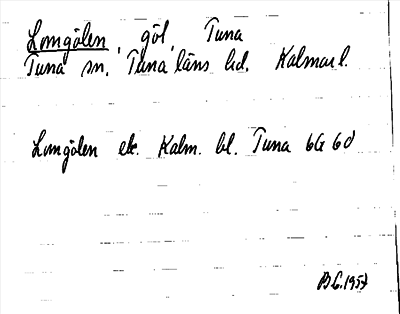 Lomgölen, göl, Tuna
Tuna sn. Tuna läns hd. Kalmar l.
Lomgölen ek. Kalm. bl. Tuna 6G 6d
1957